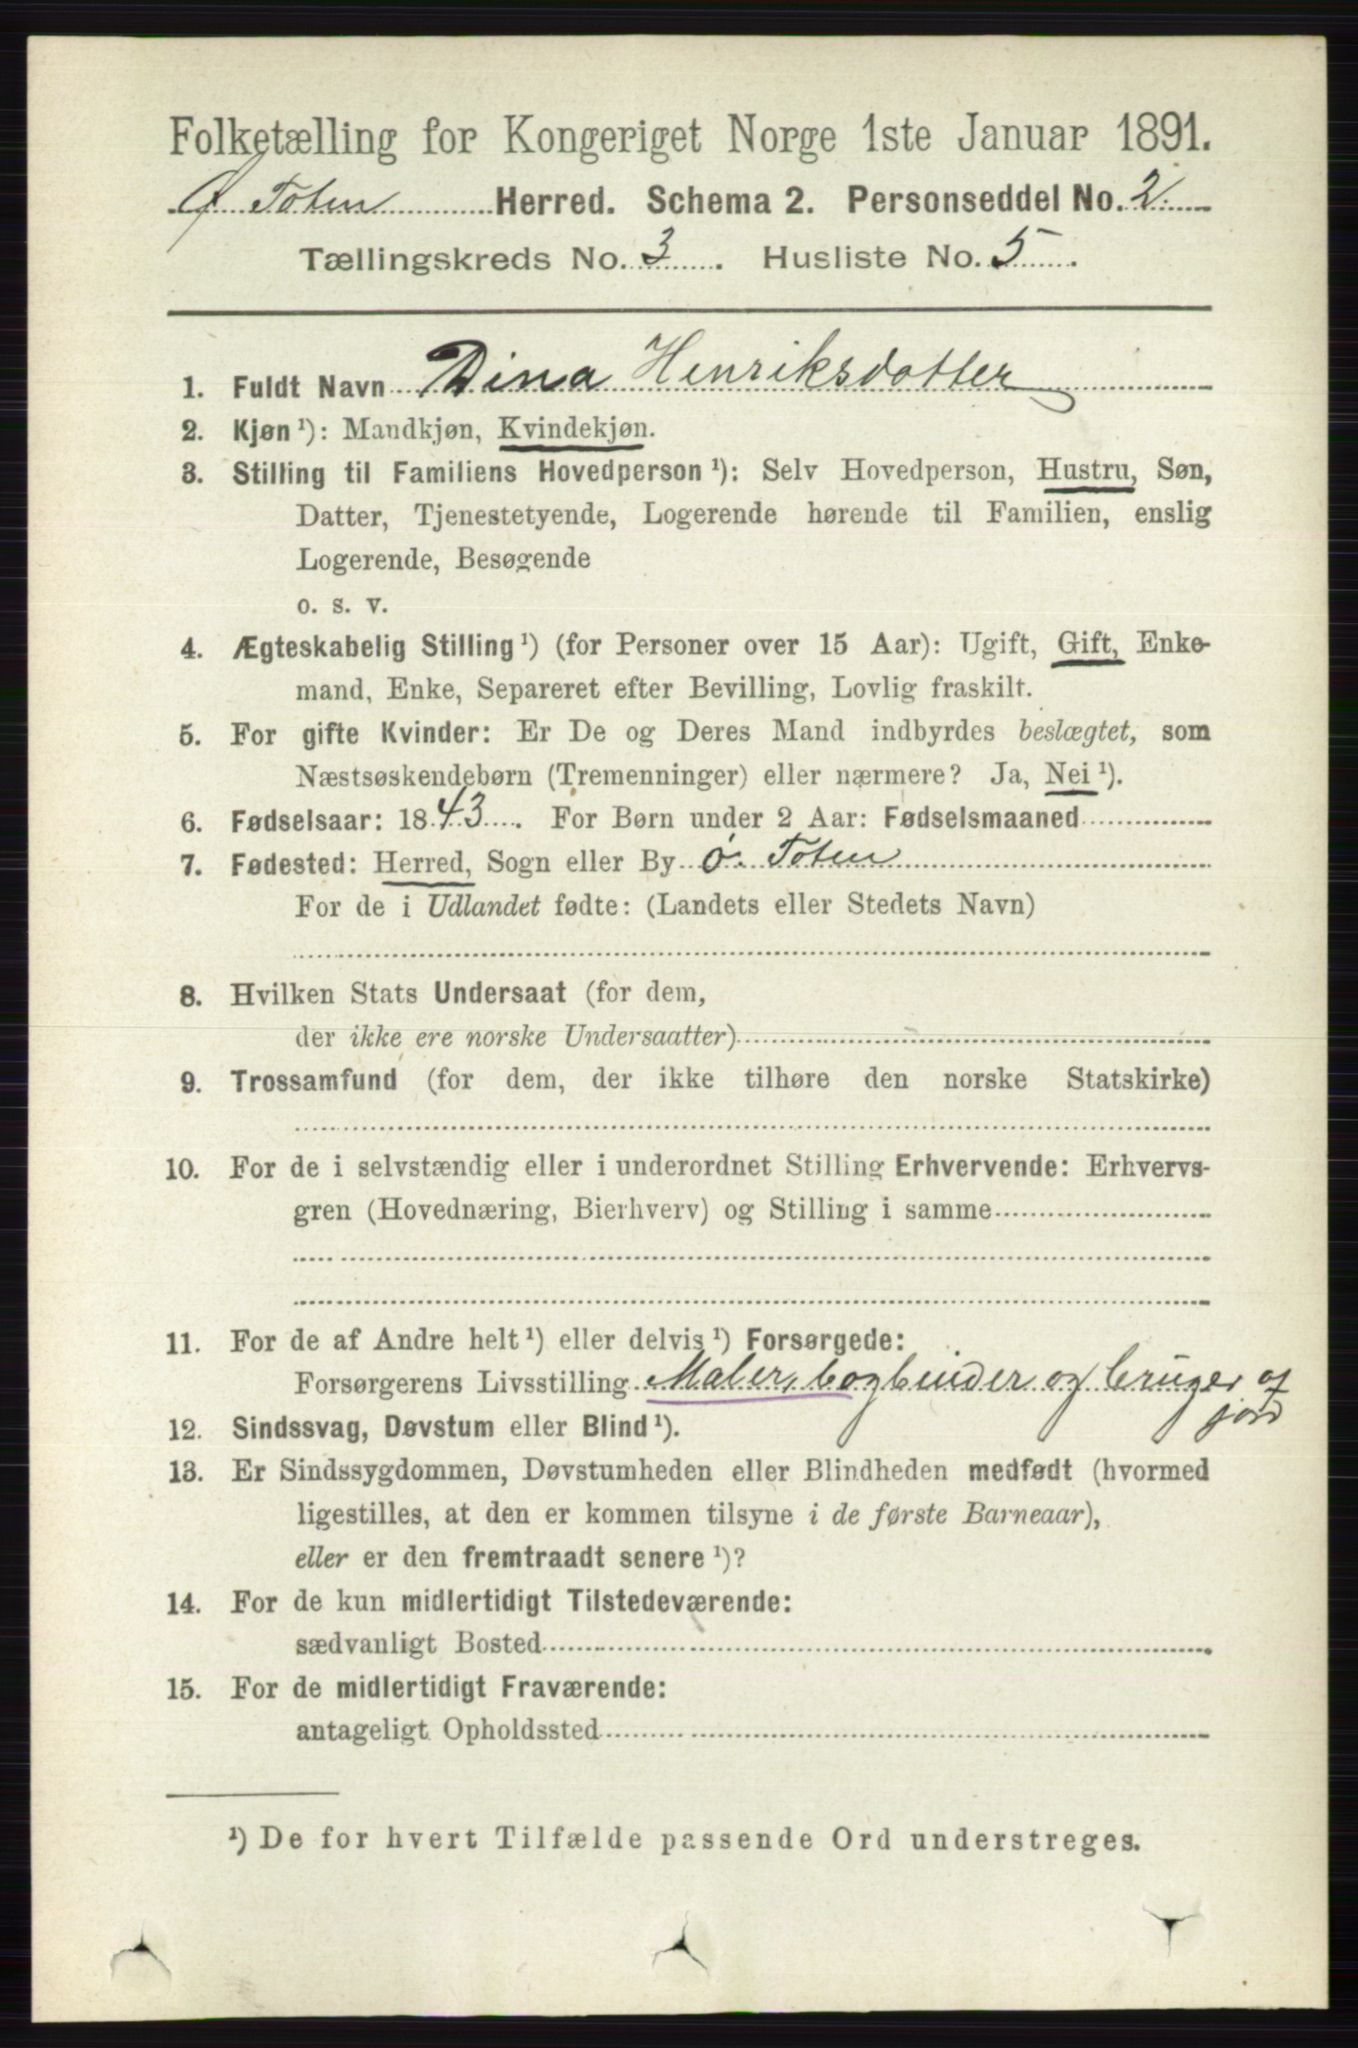 Folketælling for Kongeriget Norge 1ste Januar 1891.
Ø Toten Herred. Schema 2. Personseddel No. 2
Tællingskreds No. 3. Husliste No. 5.
1. Fuldt Navn Dina Henriksdatter
2. Kjøn¹): Mandkjøn, Kvindekjøn.
3. Stilling til Familiens Hovedperson¹): Selv Hovedperson, Hustru, Søn,
Datter, Tjenestetyende, Logerende hørende til Familien, enslig
Logerende, Besøgende
o. s. v.
4. Ægteskabelig Stilling¹) (for Personer over 15 Aar): Ugift, Gift, Enke-
mand, Enke, Separeret efter Bevilling, Lovlig fraskilt.
5. For gifte Kvinder: Er De og Deres Mand indbyrdes beslægtet, som
Næstsøskendebørn (Tremenninger) eller nærmere? Ja, Nei¹).
6. Fødselsaar: 1843. For Børn under 2 Aar: Fødselsmaaned
7. Fødested: Herred, Sogn eller By Ø. Toten
For de i Udlandet fødte: (Landets eller Stedets Navn)
8. Hvilken Stats Undersaat (for dem,
der ikke ere norske Undersaatter)
9. Trossamfund (for dem, der ikke tilhøre den norske Statskirke)
10. For de i selvstændig eller i underordnet Stilling Erhvervende: Erhvervs-
gren (Hovednæring, Bierhverv) og Stilling i samme
11. For de af Andre helt¹) eller delvis¹) Forsørgede:
Forsørgerens Livsstilling Maler, bogbinder og bruger af
jord
12. Sindssvag, Døvstum eller Blind¹).
13. Er Sindssygdommen, Døvstumheden eller Blindheden medfødt (hvormed
ligestilles, at den er kommen tilsyne i de første Barneaar),
eller er den fremtraadt senere¹)?
14. For de kun midlertidigt Tilstedeværende:
sædvanligt Bosted
15. For de midlertidigt Fraværende:
antageligt Opholdssted
¹) De for hvert Tilfælde passende Ord understreges.